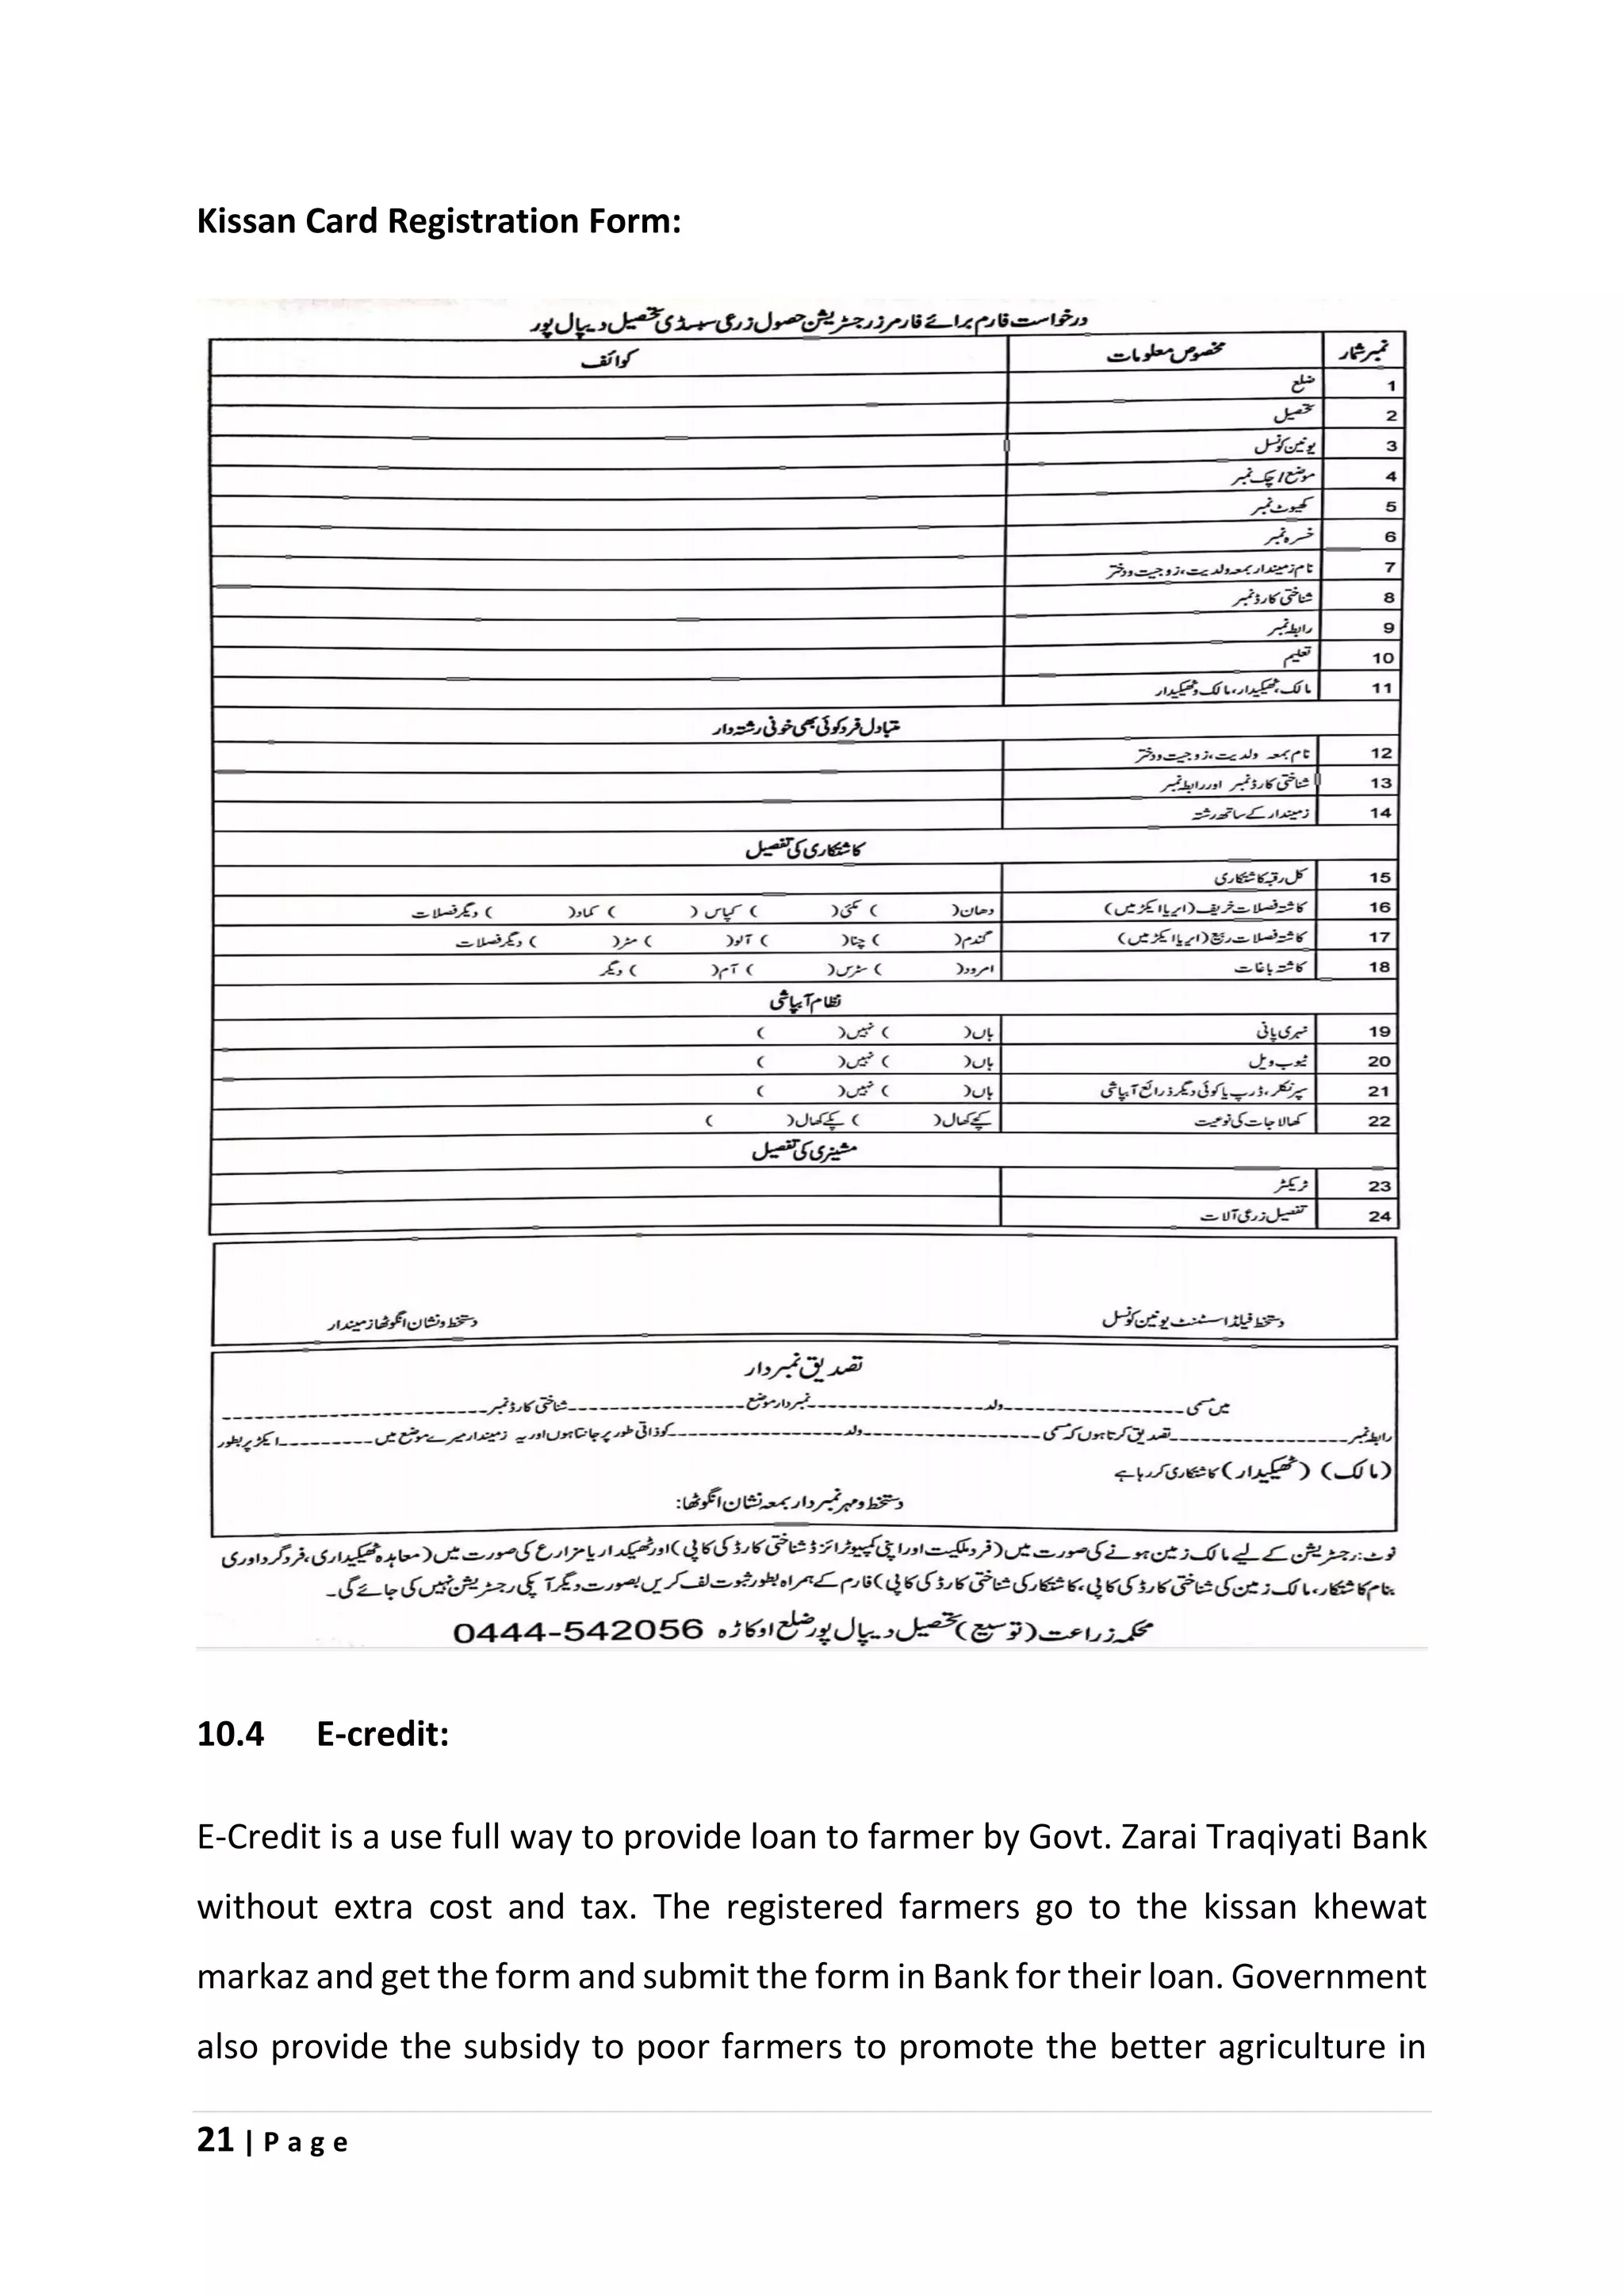 Kissan Card Registration Form:
درخواست فارم برائے فارمرز رجسٹریشن حصول زرعی سبسڈی تحصیل دیپال پور
نمبر شمار مخصوص معلومات کوائف
1 ضلع
2 تحصیل
3 یونین کونسل
4 موضع / چک نمبر
5 کھیوٹ نمبر
6 خسرہ نمبر
7 نام زمیندار بمعہ ولدیت، زوجیت و دختر
8 شناختی کارڈ نمبر
9 رابطہ نمبر
10 تعلیم
11 مالک، ٹھیکیدار، مالک و ٹھیکیدار
متبادل فرد کوئی بھی خونی رشتہ دار
12 نام بمعہ ولدیت، زوجیت و دختر
13 شناختی کارڈ نمبر اور رابطہ نمبر
14 زمیندار کے ساتھ رشتہ
کاشتکاری کی تفصیل
15 کل رقبہ کاشتکاری
16 کاشتہ فصلات خریف (ایریا ایکڑ میں) دھان( ) مکئی( ) کپاس ( ) کماد( ) دیگر فصلات
17 کاشتہ فصلات ربیع (ایریا ایکڑ میں) گندم( ) چنا( ) آلو( ) مٹر( ) دیگر فصلات
18 کاشتہ باغات امرود( ) سٹرس( ) آم( ) دیگر
نظام آبپاشی
19 نہری پانی ہاں( ) نہیں( )
20 ٹیوب ویل ہاں( ) نہیں( )
21 سپرنکلر، ڈرپ یا کوئی دیگر ذرائع آبپاشی ہاں( ) نہیں( )
22 کھالا جات کی نوعیت کچے کھال( ) پکے کھال( )
مشینری کی تفصیل
23 ٹریکٹر
24 تفصیل زرعی آلات
دستخط فیلڈ اسسٹنٹ یونین کونسل دستخط و نشان انگوٹھا زمیندار
تصدیق نمبردار
میں مسمی ------------ ولد ------------ نمبردار موضع ------------ شناختی کارڈ نمبر ------------
رابطہ نمبر ------------ تصدیق کرتا ہوں کہ مسمی ------------ ولد ------------ کو ذاتی طور پر جانتا ہوں اور یہ زمیندار میرے موضع میں --------- ایکڑ پر بطور
(مالک) (ٹھیکیدار) کاشتکاری کر رہا ہے
دستخط و مہر نمبردار بمعہ نشان انگوٹھا:
نوٹ: رجسٹریشن کے لیے مالک زمین ہونے کی صورت میں (فرد ملکیت اور اپنی کمپیوٹرائزڈ شناختی کارڈ کی کاپی) اور ٹھیکیدار یا مزارع کی صورت میں (معاہدہ ٹھیکیداری، فرد گرداوری
بنام کاشتکار، مالک زمین کی شناختی کارڈ کی کاپی، کاشتکار کی شناختی کارڈ کی کاپی) فارم کے ہمراہ بطور ثبوت لف کریں بصورت دیگر آپکی رجسٹریشن نہیں کی جائے گی۔
محکمہ زراعت (توسیع) تحصیل دیپال پور ضلع اوکاڑہ 0444-542056
10.4 E-credit:
E-Credit is a use full way to provide loan to farmer by Govt. Zarai Traqiyati Bank
without extra cost and tax. The registered farmers go to the kissan khewat
markaz and get the form and submit the form in Bank for their loan. Government
also provide the subsidy to poor farmers to promote the better agriculture in
21 | P a g e